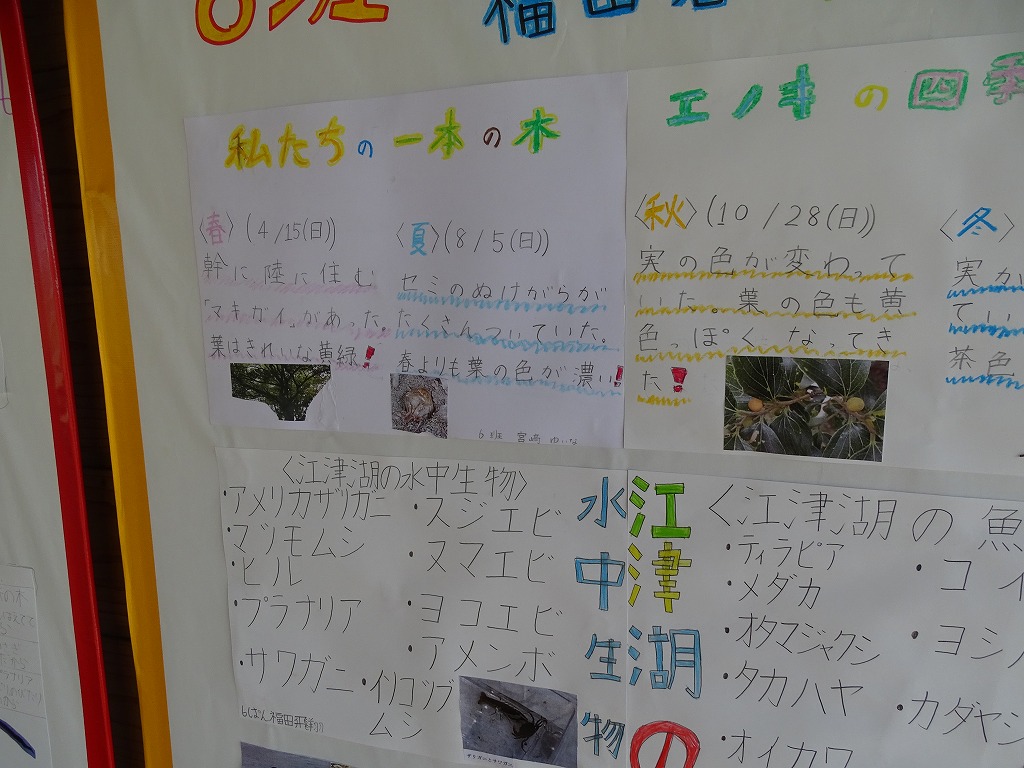 6班 福田
私たちの一本の木
〈春〉(4/15(日))
幹に、陸に住む
「マキガイ」があった。
葉はきれいな黄緑!
〈夏〉(8/5(日))
セミのぬけがらが
たくさんついていた。
春よりも葉の色が濃い!
6班 宮崎 ゆいな
エノキの四季
〈秋〉(10/28(日))
実の色が変わって
いた。葉の色も黄
色っぽくなってき
た!
〈冬〉
実か
てい
茶色
〈江津湖の水中生物〉
・アメリカザリガニ
・マツモムシ
・ヒル
・プラナリア
・サワガニ
・スジエビ
・ヌマエビ
・ヨコエビ
・アメンボ
・イソコツブ
ムシ
6ぱん 福田
水中生物
江津湖の
〈江津湖の魚
・ティラピア
・メダカ
・オタマジャクシ
・タカハヤ
・オイカワ
・コイ
・ヨシノ
・カダヤシ